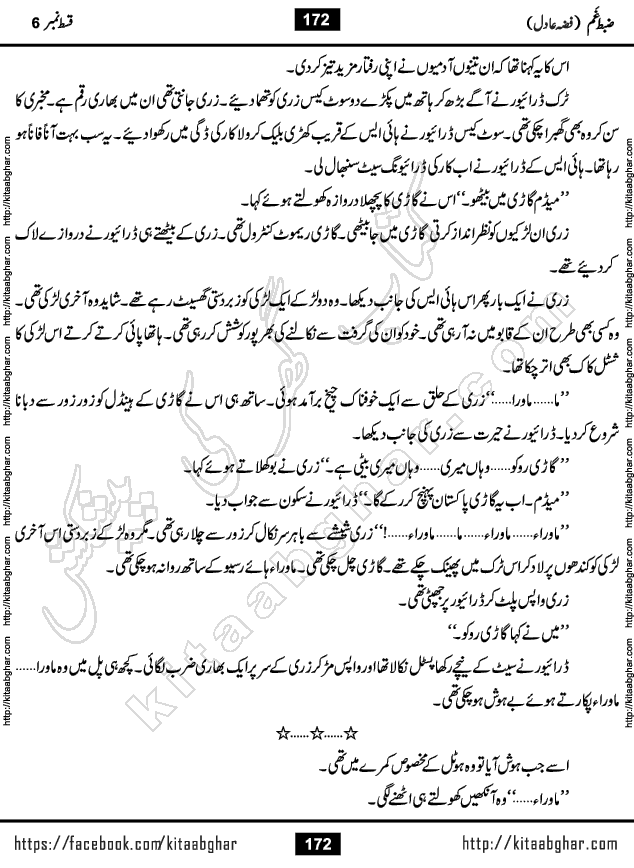 ضبطِ غم (فضہ عادل)
172
قسط نمبر 6
اس کا یہ کہنا تھا کہ ان تینوں آدمیوں نے اپنی رفتار مزید تیز کر دی۔
ٹرک ڈرائیور نے آگے بڑھ کر ہاتھ میں پکڑے دو سوٹ کیس زری کو تھما دیئے۔ زری جانتی تھی ان میں بھاری رقم ہے۔ مخبری کا
سن کر وہ بھی گھبرا چکی تھی۔ سوٹ کیس ڈرائیور نے ہائی ایس کے قریب کھڑی بلیک کرولا کار کی ڈگی میں رکھوا دیئے۔ یہ سب بہت آناً فاناً ہو
رہا تھا۔ ہائی ایس کے ڈرائیور نے اب کار کی ڈرائیونگ سیٹ سنبھال لی۔
’’میڈم گاڑی میں بیٹھو۔‘‘ اس نے گاڑی کا پچھلا دروازہ کھولتے ہوئے کہا۔
زری ان لڑکیوں کو نظر انداز کرتی گاڑی میں جا بیٹھی۔ گاڑی ریموٹ کنٹرول تھی۔ زری کے بیٹھتے ہی ڈرائیور نے دروازے لاک
کر دیئے تھے۔
زری نے ایک بار پھر اس ہائی ایس کی جانب دیکھا۔ وہ دو لڑکے ایک لڑکی کو زبردستی گھسیٹ رہے تھے۔ شاید وہ آخری لڑکی تھی۔
وہ کسی بھی طرح ان کے قابو میں نہ آ رہی تھی۔ خود کو ان کی گرفت سے نکالنے کی بھرپور کوشش کر رہی تھی۔ ہاتھا پائی کرتے کرتے اس لڑکی کا
شٹل کاک بھی اتر چکا تھا۔
’’ما...... ماورا......‘‘ زری کے حلق سے ایک خوفناک چیخ برآمد ہوئی۔ ساتھ ہی اس نے گاڑی کے ہینڈل کو زور زور سے دبانا
شروع کر دیا۔ ڈرائیور نے حیرت سے زری کی جانب دیکھا۔
’’گاڑی روکو...... وہاں میری...... وہاں میری بیٹی ہے۔‘‘ زری نے بوکھلاتے ہوئے کہا۔
’’میڈم۔ اب یہ گاڑی پاکستان پہنچ کر رکے گا۔‘‘ ڈرائیور نے سکون سے جواب دیا۔
’’ماوراء...... ماوراء...... ما...... ماوراء......!‘‘ زری شیشے سے باہر سر نکال کر زور سے چلا رہی تھی۔ مگر وہ لڑکے زبردستی اس آخری
لڑکی کو کندھوں پر لاد کر اس ٹرک میں پھینک چکے تھے۔ گاڑی چل چکی تھی۔ ماوراء ہائے رسیو کے ساتھ روانہ ہو چکی تھی۔
زری واپس پلٹ کر ڈرائیور پر جھپٹی تھی۔
’’میں نے کہا گاڑی روکو۔‘‘
ڈرائیور نے سیٹ کے نیچے رکھا پسٹل نکالا تھا اور واپس مڑ کر زری کے سر پر ایک بھاری ضرب لگائی۔ کچھ ہی پل میں وہ ماورا......
ماوراء پکارتے ہوئے بے ہوش ہو چکی تھی۔
☆......☆......☆
اسے جب ہوش آیا تو وہ ہوٹل کے مخصوص کمرے میں تھی۔
’’ماوراء......‘‘ وہ آنکھیں کھولتے ہی اٹھنے لگی۔
کتاب گھر کی پیشکش
kitaabghar.com
http://kitaabghar.com http://kitaabghar.com http://kitaabghar.com http://kitaabghar.com http://kitaabghar.com http://kitaabghar.com
http://kitaabghar.com http://kitaabghar.com http://kitaabghar.com http://kitaabghar.com http://kitaabghar.com http://kitaabghar.com
https://facebook.com/kitaabghar
172
http://kitaabghar.com